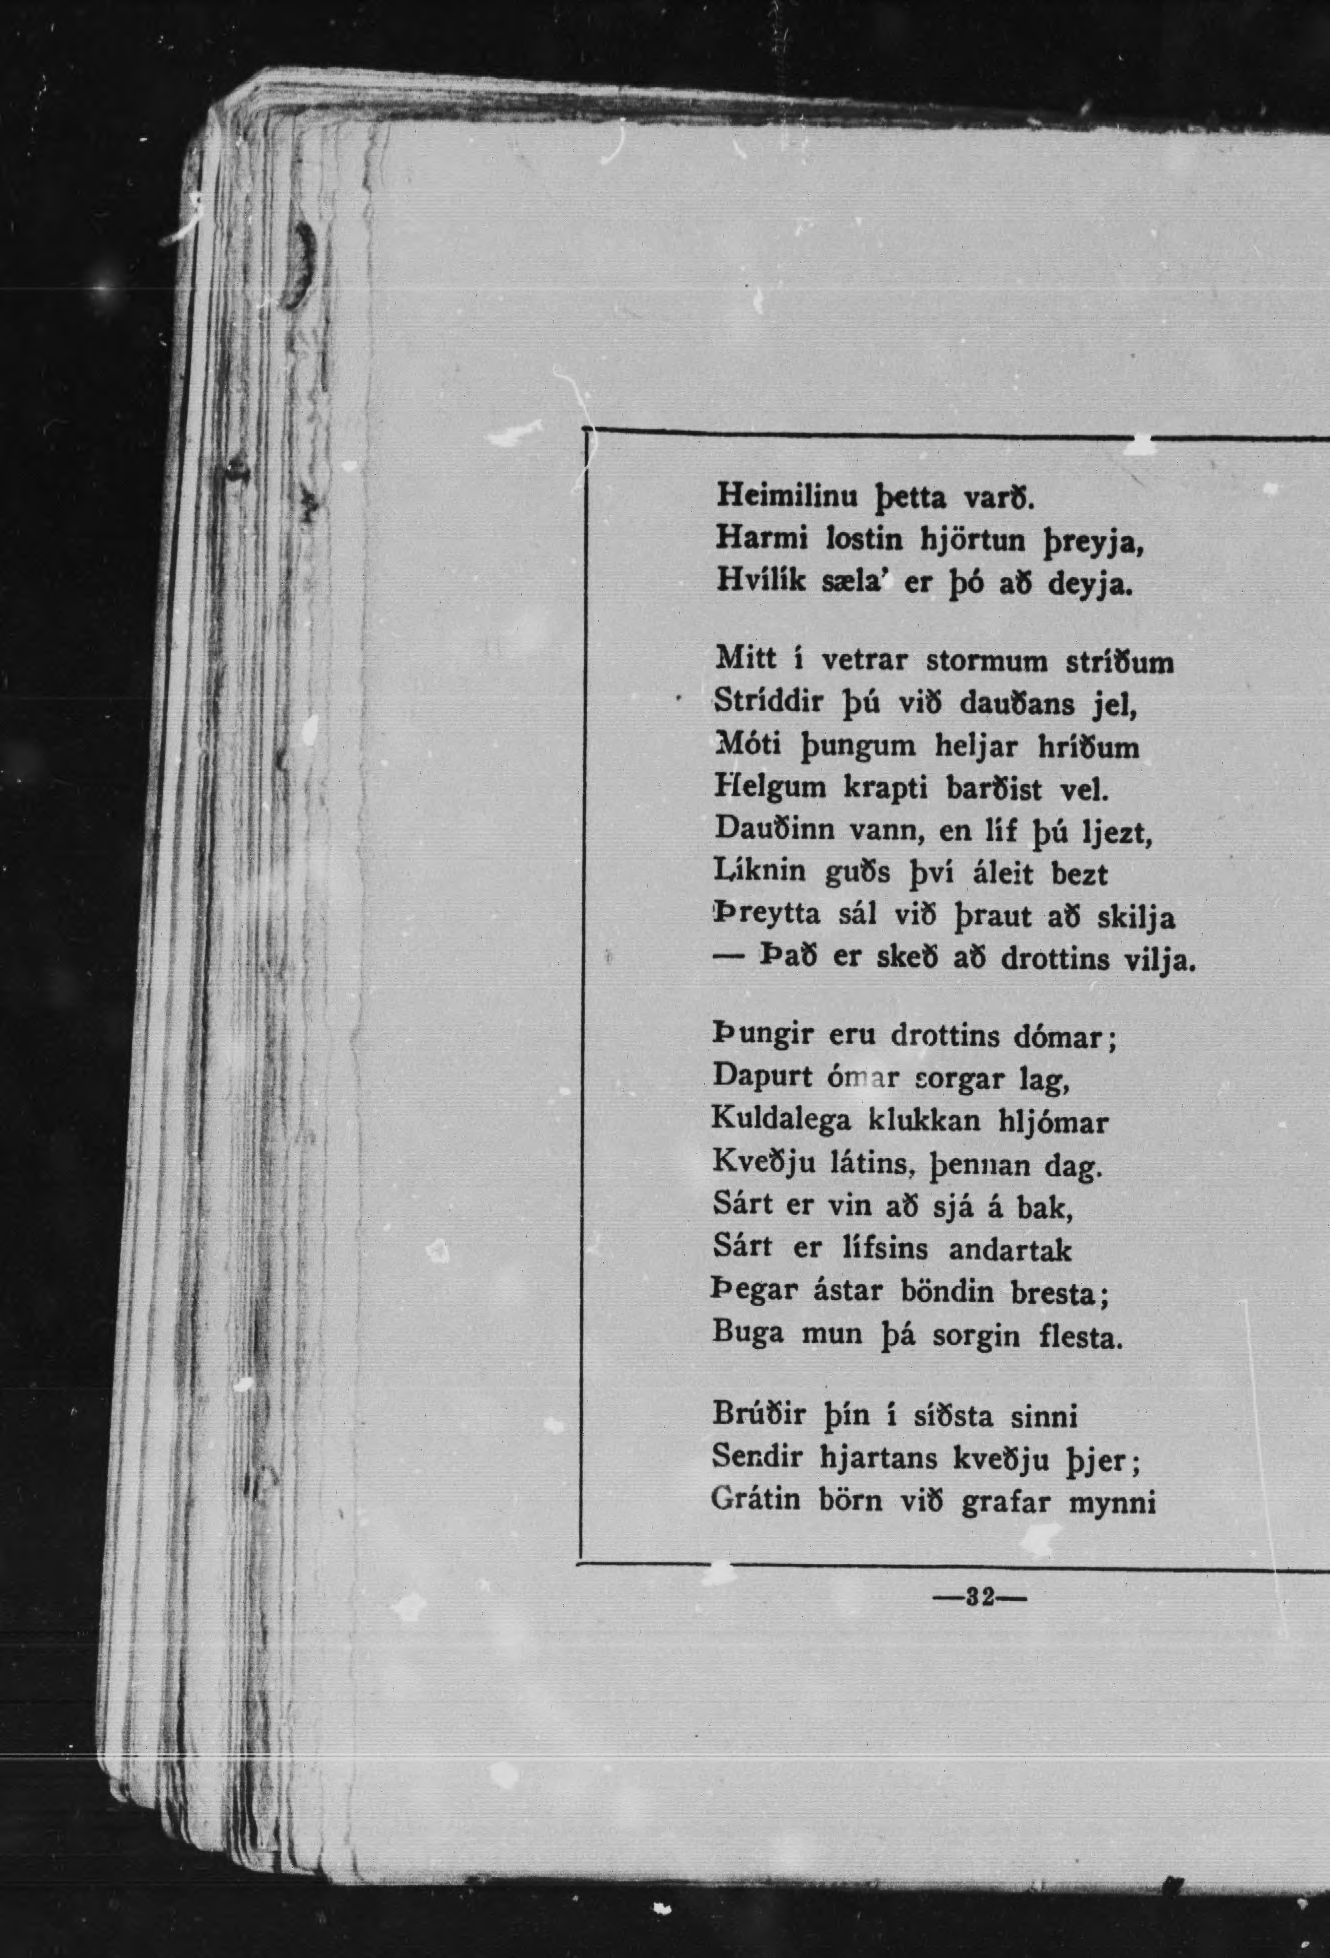 Heimilinu þetta varð.
Harmi lostin hjörtun þreyja,
Hvílík sæla' er þó að deyja.
Mitt í vetrar stormum stríðum
Stríddir þú við dauðans jel,
Móti þungum heljar hríðum
Helgum krapti barðist vel.
Dauðinn vann, en líf þú ljezt,
Líknin guðs því áleit bezt
Þreytta sál við þraut að skilja
— Það er skeð að drottins vilja.
Þungir eru drottins dómar;
Dapurt ómar sorgar lag,
Kuldalega klukkan hljómar
Kveðju látins, þennan dag.
Sárt er vin að sjá á bak,
Sárt er lífsins andartak
Þegar ástar böndin bresta;
Buga mun þá sorgin flesta.
Brúðir þín í síðsta sinni
Sendir hjartans kveðju þjer;
Grátin börn við grafar mynni
—32—